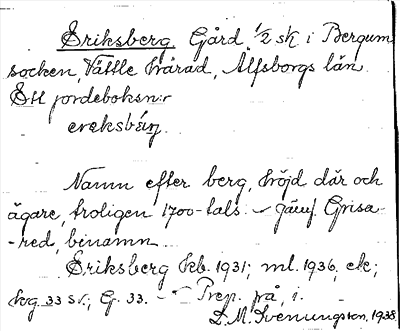 Eriksberg Gård, 1/2 sk i Bergum
socken, Vättle härad, Älfsborgs län.
Ett jordeboksn:r
ereksbérj.
Namn efter berg, höjd där och
ägare, troligen 1700-tals. – Jämf. Grisa-
-red, binamn.
Eriksberg kb. 1931; ml. 1936, ek;
hkg 33 Sv.; G. 33. – Prep. på, i.
D. M. Svenungsson, 1938.